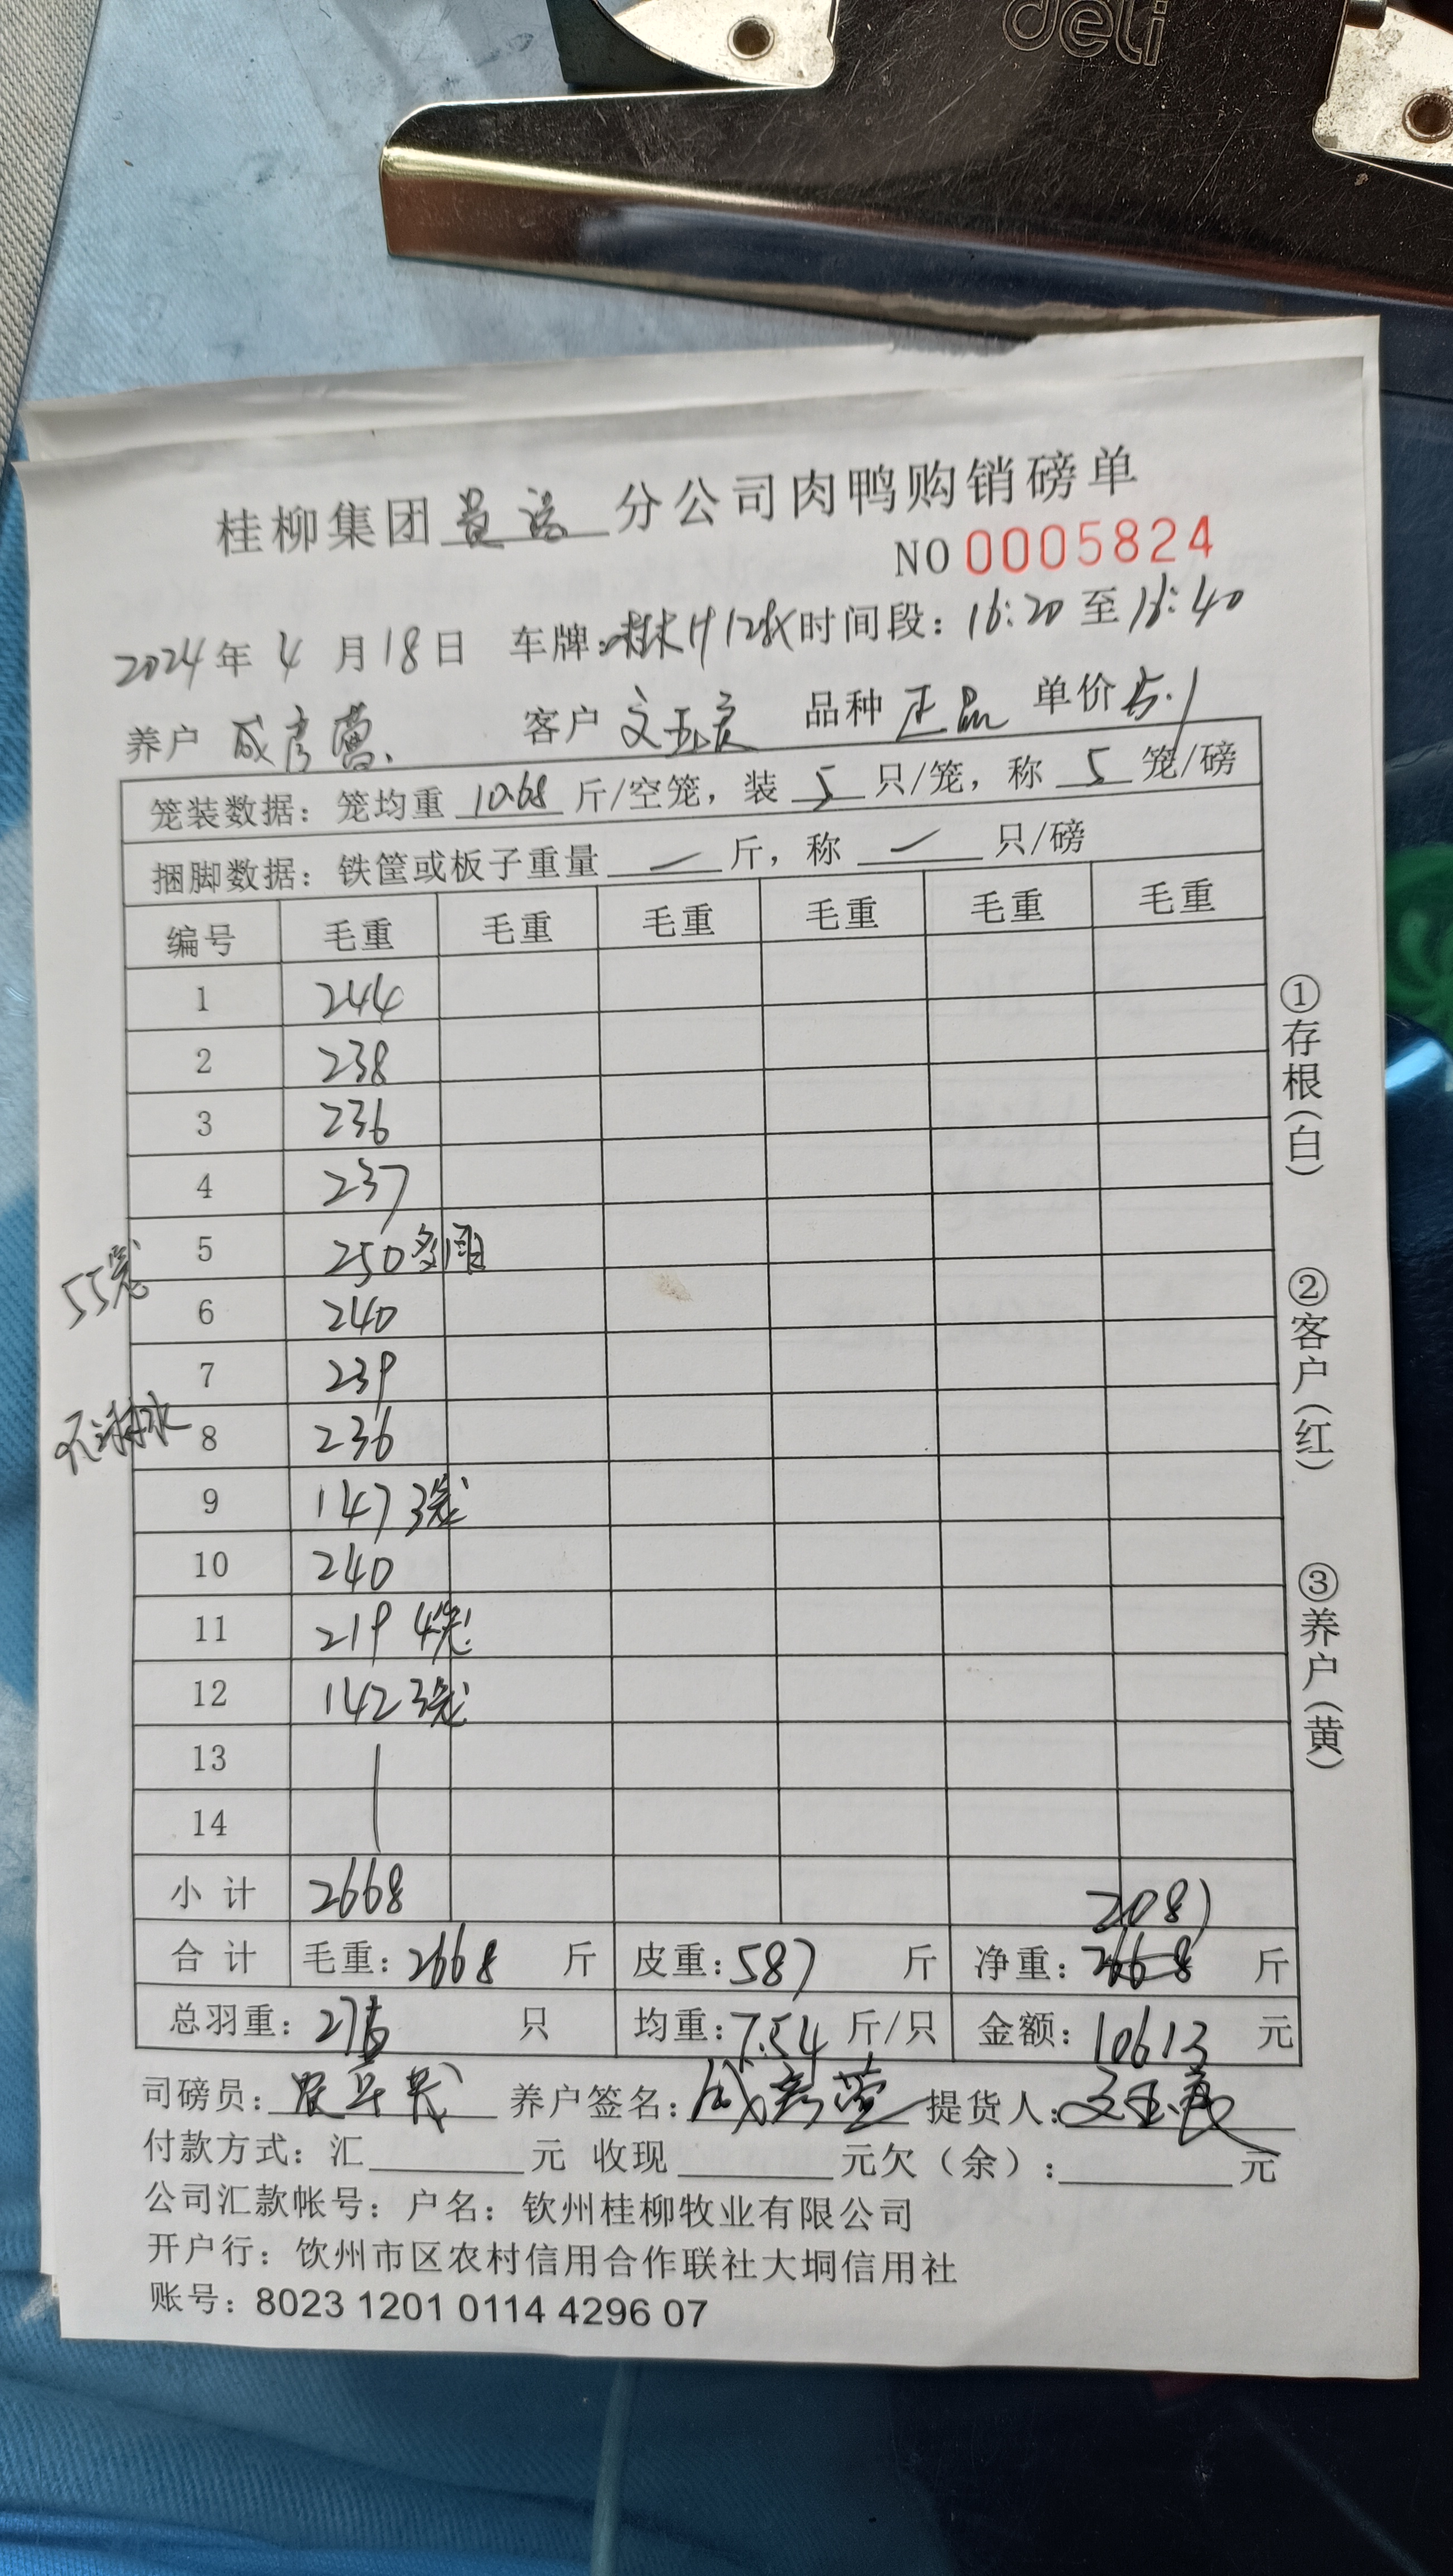 deli
桂柳集团 分公司肉鸭购销磅单
NO 0005824
2024年 4 月 18日 车牌: 时间段: 16:20 至 16:40
养户 成彦营 客户 品种 正品 单价 5.1
笼装数据: 笼均重 10.68 斤/空笼, 装 5 只/笼, 称 5 笼/磅
捆脚数据: 铁筐或板子重量 — 斤, 称 — 只/磅
编号 毛重 毛重 毛重 毛重 毛重 毛重
1 244
2 238
3 236
4 237
5 250 多1只
55笼
6 240
7 239
不淋水
8 236
9 147 3笼
10 240
11 219 4笼
12 142 3笼
13
14
小计 2668
2081
合计 毛重: 2668 斤 皮重: 587 斤 净重: 2668 斤
总羽重: 276 只 均重: 7.54 斤/只 金额: 10613 元
司磅员: 养户签名: 成彦营 提货人:
付款方式: 汇 元 收现 元欠(余): 元
公司汇款帐号: 户名: 钦州桂柳牧业有限公司
开户行: 饮州市区农村信用合作联社大垌信用社
账号: 8023 1201 0114 4296 07
①存根(白)
②客户(红)
③养户(黄)